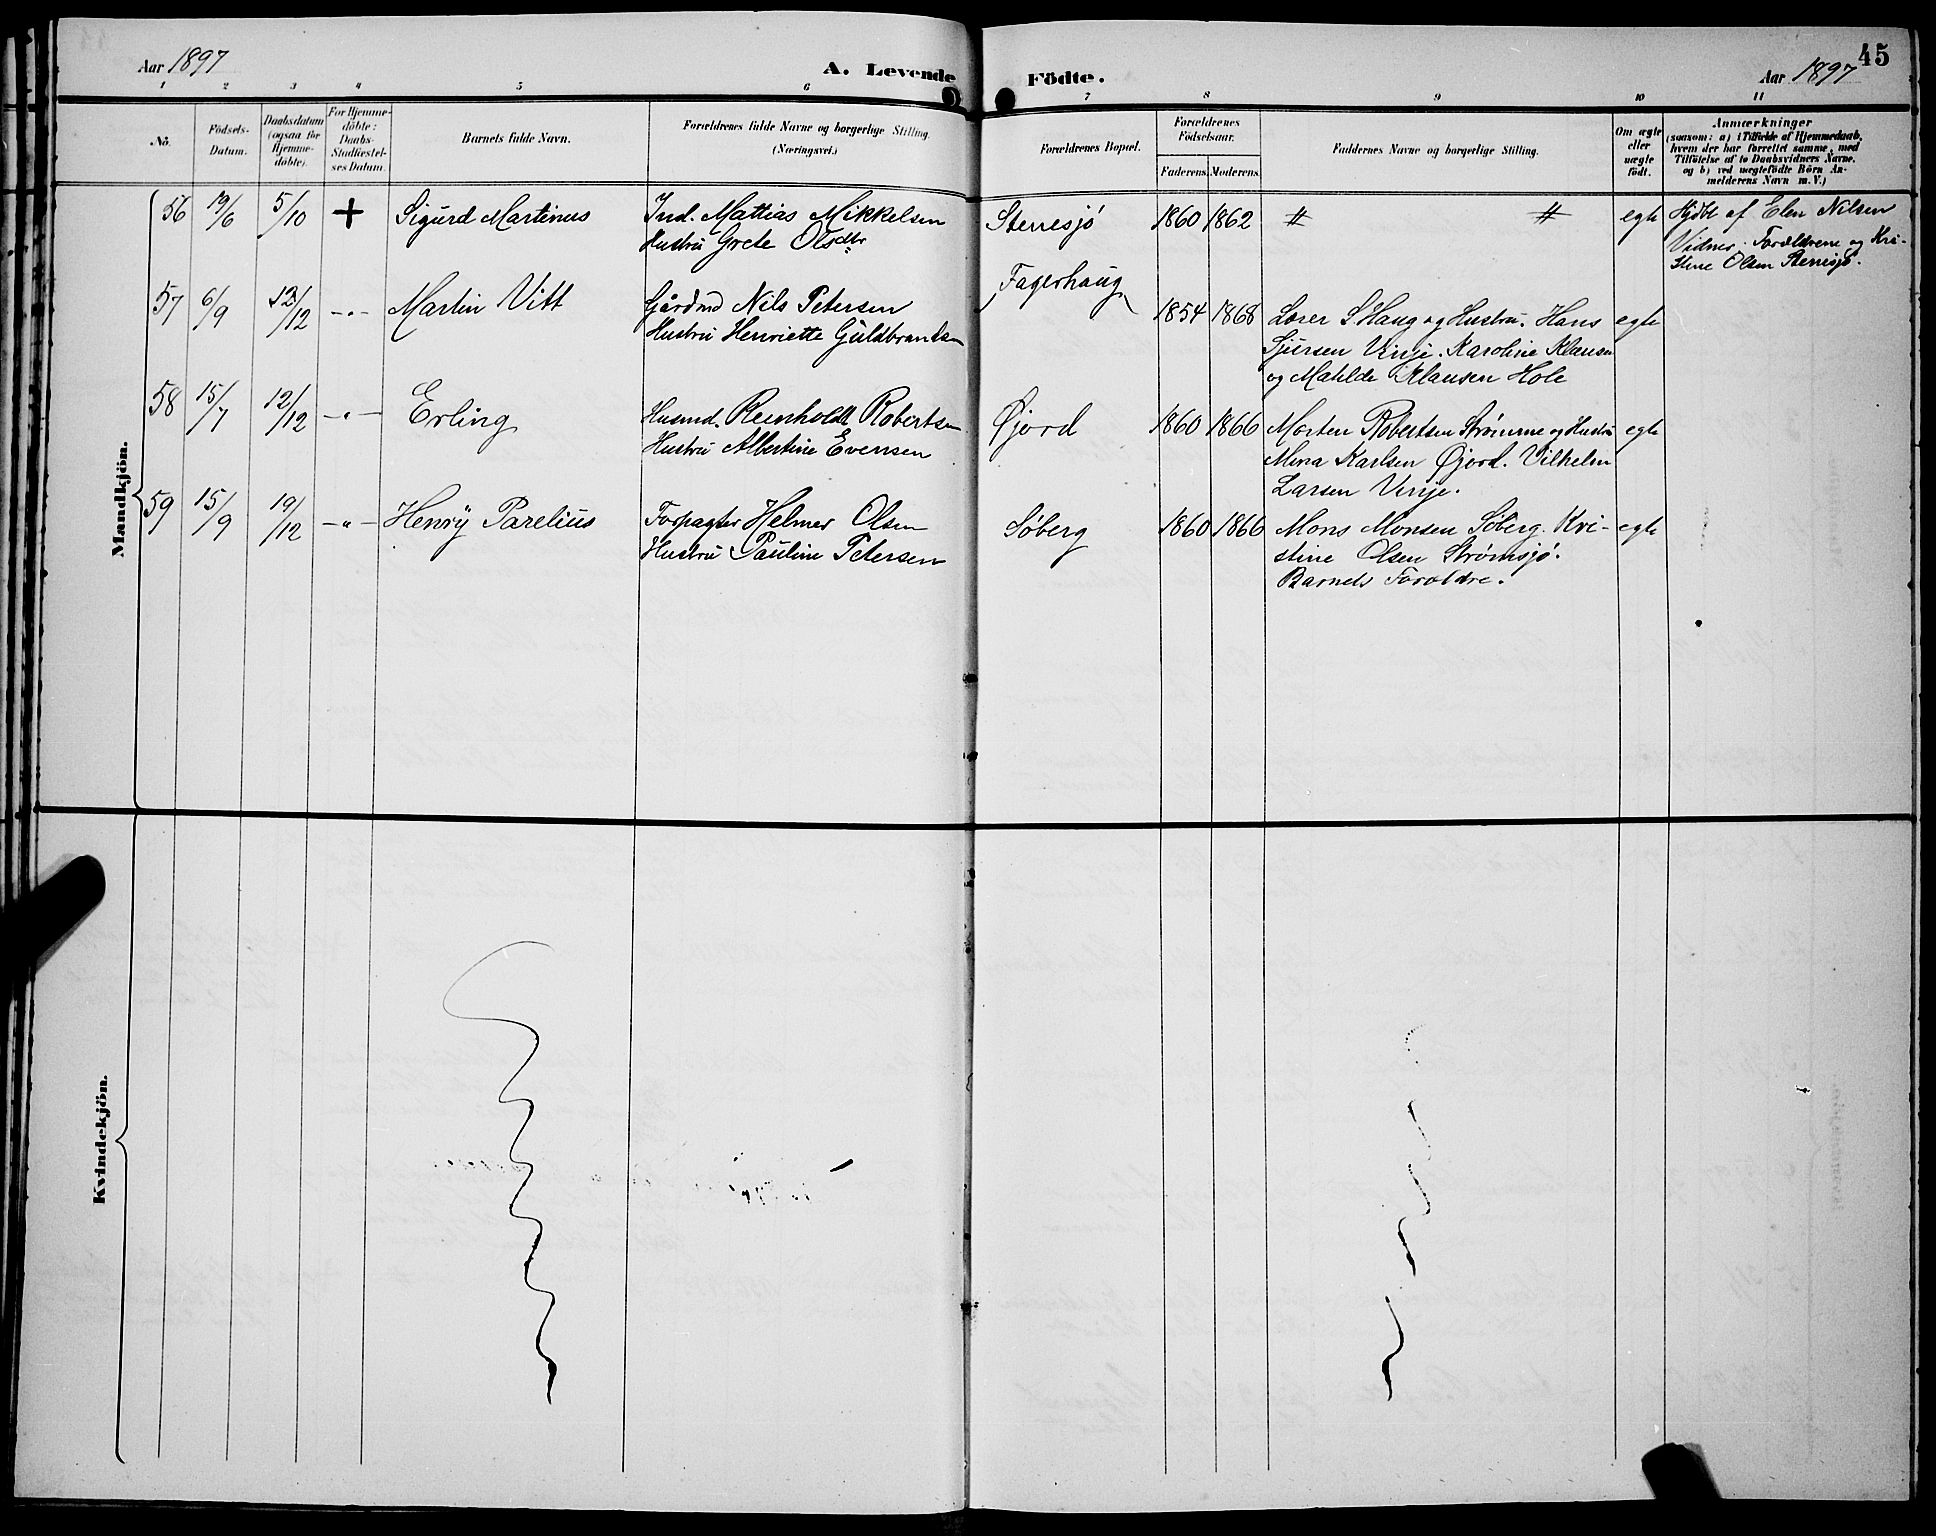 Aar 1897
A. Levende
Födte.
Aar 1897
45
1 2 3 4 5 6 7 8 9 10 11
No.
Födsels-
Datum.
Daabsdatum
(ogsaa for
Hjemme-
döbte).
For Hjemme-
döbte:
Daabs-
Stadfæstel-
ses Datum.
Barnets fulde Navn.
Forældrenes fulde Navne og borgerlige Stilling.
(Næringsvei.)
Forældrenes Bopæl.
Forældrenes
Födselsaar.
Faderens. Moderens.
Faddernes Navne og borgerlige Stilling.
Om ægte
eller
uægte
födt.
Anmærkninger
(saasom: a) i Tilfælde af Hjemmedaab,
hvem der har forrettet samme, med
Tilföielse af to Daabsvidners Navne,
og b) ved uægtefödte Börn An-
melderens Navn m. V.)
Mandkjön.
56 19/6 5/10 + Sigurd Martinus Ind. Mattias Mikkelsen Sterresjö 1860 1862 〃 〃 egte Hjdbt af Elen Nilsen
Hustru Grete Olsdtr Vidner: Forældrene og Kri-
stine Olsen Sterresjö.
Fagerhaug
57 6/9 12/12 -"- Martin Vitt Gårdmd Nils Petersen 1854 1868 Lærer S Haug og Hustru. Hans egte
Hustru Henriette Guldbrandsen Sjursen Vinje. Karoline Klausen
og Matilde Klausen Hole
58 15/7 12/12 -"- Erling Husmd. Reinholdt Robertsen Øjord 1860 1866 Morten Robertsen Strømme og Hustru egte
Hustru Albertine Evensen Mina Karlsen Øjord. Vilhelm
Larsen Vinje.
59 15/9 19/12 -"- Henrÿ Parelius Forpagter Helmer Olsen Söberg 1860 1866 Mons Monsen Söberg. Kri- egte
Hustru Pauline Petersen stine Olsen Strømsjö.
Barnets Foroldre.
Kvindekjön.